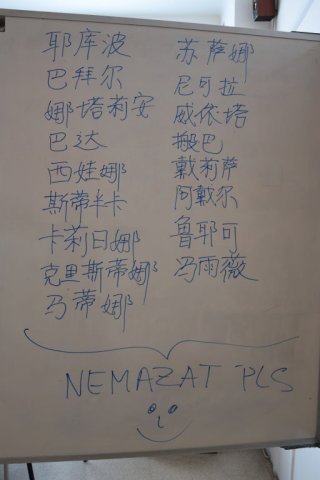 耶库波
巴拜尔
娜塔莉安
巴达
西娃娜
斯蒂半卡
卡莉日娜
克里斯蒂娜
马蒂娜
苏萨娜
尼可拉
威依塔
搬巴
戴莉萨
阿戴尔
鲁耶可
冯雨薇
NEMAZAT PLS